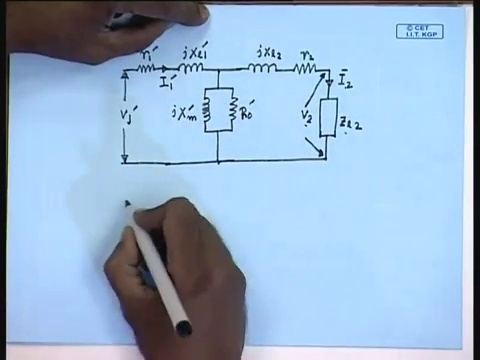 © CET
I.I.T. KGP
r₁' jXl₁' jXl₂ r₂
I₁' Ī₂
V₁' jX'm R₀' V₂ Zl₂